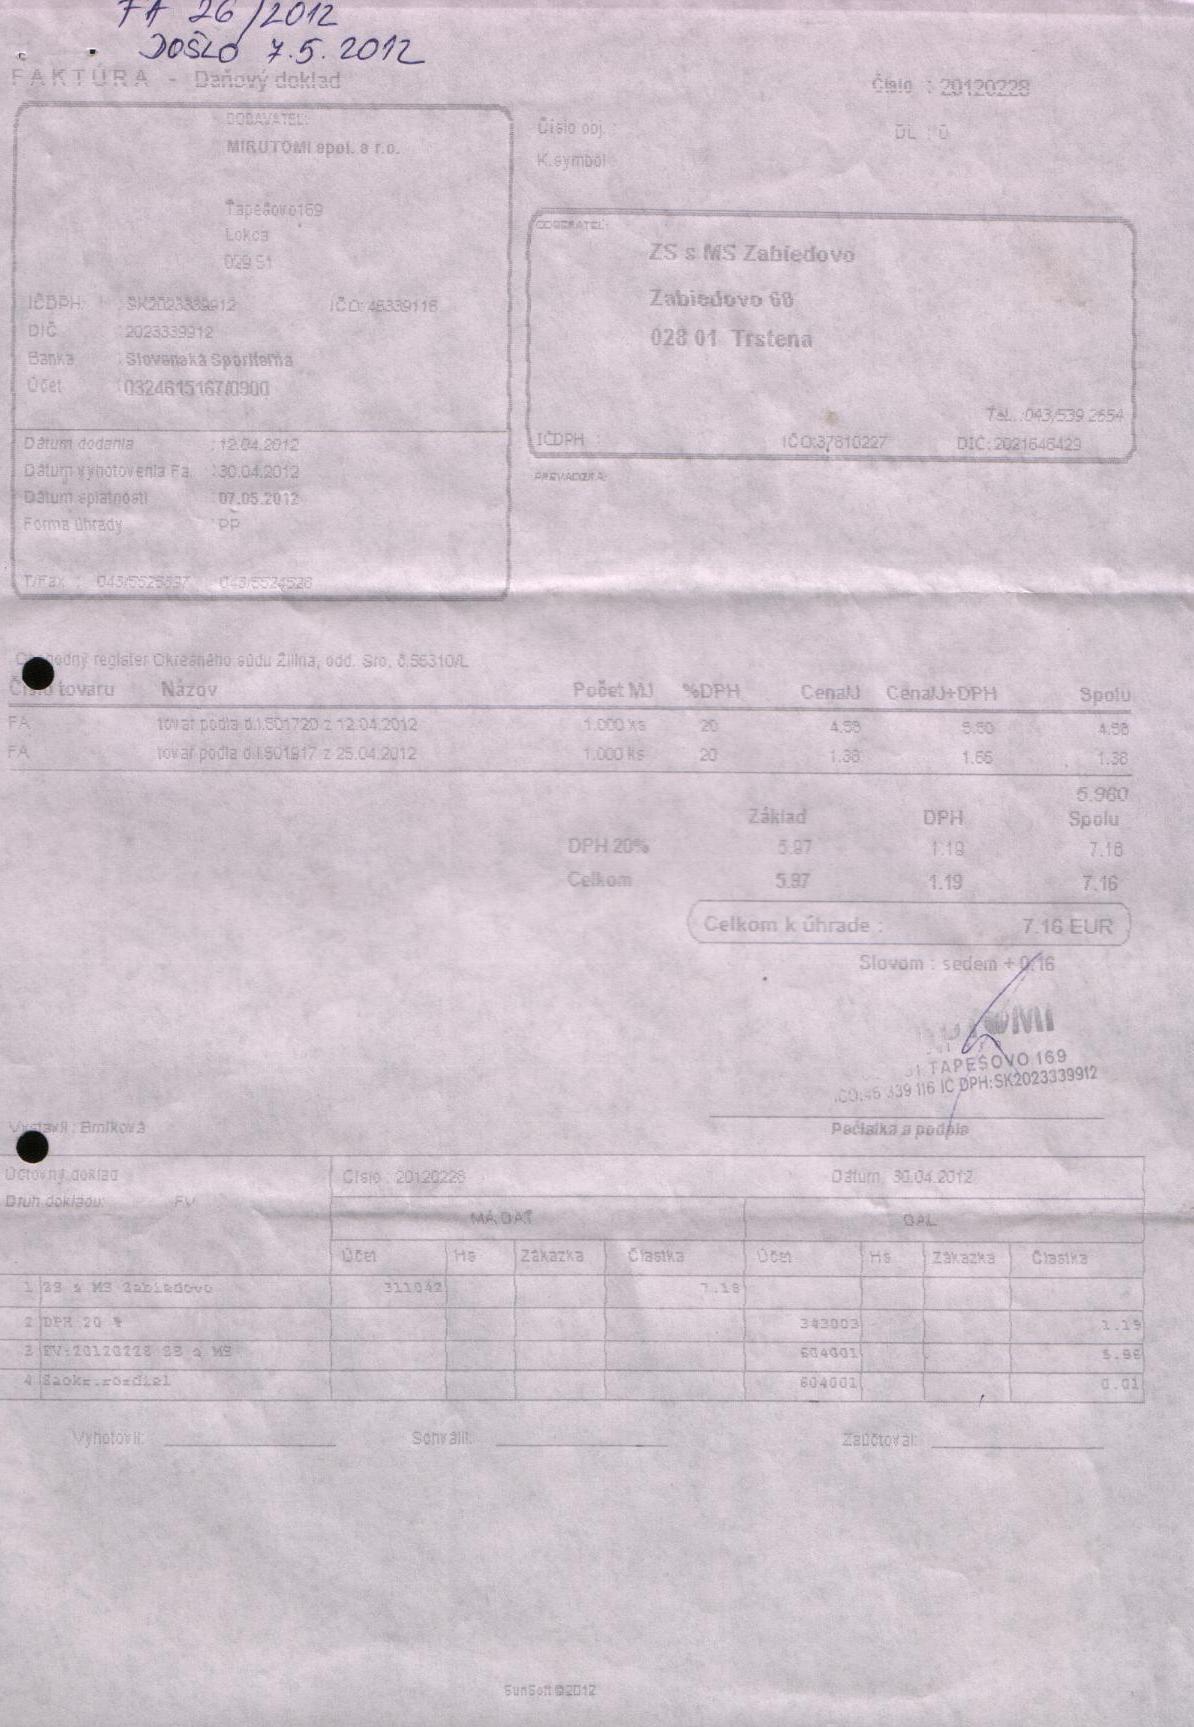 FA 26/2012
DOŠLO 7.5.2012
FAKTÚRA - Daňový doklad
Číslo : 20120228
DODÁVATEĽ:
MIRUTOMI spol. s r.o.
Číslo obj.
DL : 0
K.symbol
Ťapešovo169
Lokca
029 51
ODBERATEĽ:
ZS s MS Zabiedovo
Zabiedovo 68
028 01 Trstena
IČDPH: SK2023339912 IČO:46339116
DIČ : 2023339912
Banka : Slovenská Sporiteľňa
Účet : 0324615167/0900
Tel.:043/539 2654
IČDPH : IČO:37810227 DIČ:2021646429
Dátum dodania : 12.04.2012
Dátum vyhotovenia Fa : 30.04.2012
Dátum splatnosti : 07.05.2012
Forma úhrady : PP
PREVÁDZKA:
T/Fax :
Obchodný register Okresného súdu Žilina, odd. Sro, č.55310/L
Číslo tovaru Názov Počet MJ %DPH CenaJ CenaJ+DPH Spolu
FA tovar podľa d.l.501720 z 12.04.2012 1.000 ks 20 4.58 5.50 4.58
FA tovar podľa d.l.501917 z 25.04.2012 1.000 ks 20 1.38 1.66 1.38
5.960
Základ DPH Spolu
DPH 20% 5.97 1.19 7.16
Celkom 5.97 1.19 7.16
Celkom k úhrade : 7.16 EUR
Slovom : sedem + 0.16
TAPEŠOVO 169
IČO:46 339 116 IČ DPH:SK2023339912
Pečiatka a podpis
Vystavil : Brniková
Účtovný doklad Číslo : 20120228 Dátum 30.04.2012
Druh dokladu: FV
MÁ DAŤ DAL
Účet Hs Zákazka Čiastka Účet Hs Zákazka Čiastka
1 ZS s MS Zabiedovo 311042 7.16
2 DPH 20 % 343003 1.19
3 FV:20120228 ZS s MS 604001 5.96
4 Zaokr.rozdiel 604001 0.01
Vyhotovil: Schválil: Zaúčtoval:
SunSoft ©2012